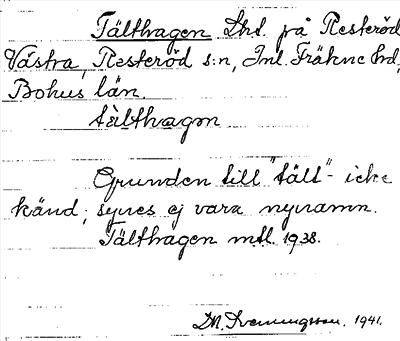 Tälthagen Lht. på Resteröd
Västra, Resteröd s:n, Inl. Fräkne hd,
Bohus län.
tälthagen
Grunden till "tält"- icke
känd; synes ej vara nynamn.
Tälthagen mtl. 1938.
M. 1941.